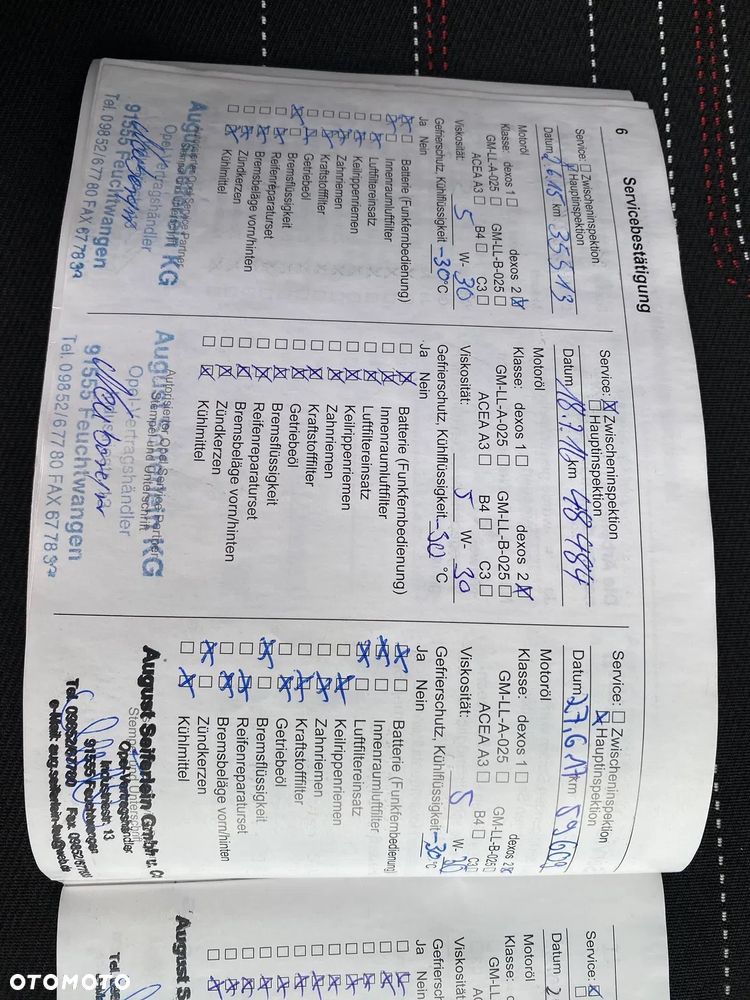 6
Servicebestätigung
Service: Zwischeninspektion
Hauptinspektion
Datum km 35513
Motoröl
Klasse: dexos 1 dexos 2
GM-LL-A-025 GM-LL-B-025
ACEA A3 B4 C3
Viskosität: 5 W- 30
Gefrierschutz, Kühlflüssigkeit -30 °C
Ja Nein
Batterie (Funkfernbedienung)
Innenraumluftfilter
Luftfiltereinsatz
Keilrippenriemen
Zahnriemen
Kraftstofffilter
Getriebeöl
Bremsflüssigkeit
Reifenreparaturset
Bremsbeläge vorn/hinten
Zündkerzen
Kühlmittel
August Seiferlein KG
Opel Vertragshändler
91555 Feuchtwangen
Tel. 09852/67780 FAX 677832
Service: Zwischeninspektion
Hauptinspektion
Datum 18.7.16 km 48484
Motoröl
Klasse: dexos 1 dexos 2
GM-LL-A-025 GM-LL-B-025
ACEA A3 B4 C3
Viskosität: 5 W- 30
Gefrierschutz, Kühlflüssigkeit -30 °C
Ja Nein
Batterie (Funkfernbedienung)
Innenraumluftfilter
Luftfiltereinsatz
Keilrippenriemen
Zahnriemen
Kraftstofffilter
Getriebeöl
Bremsflüssigkeit
Reifenreparaturset
Bremsbeläge vorn/hinten
Zündkerzen
Kühlmittel
Autorisierter Opel Service Partner
Stempel und Unterschrift
August Seiferlein KG
Opel Vertragshändler
91555 Feuchtwangen
Tel. 09852/67780 FAX 677832
Service: Zwischeninspektion
Hauptinspektion
Datum 27.6.17 km 59602
Motoröl
Klasse: dexos 1 dexos 2
GM-LL-A-025 GM-LL-B-025
ACEA A3 B4 C3
Viskosität: 5 W- 30
Gefrierschutz, Kühlflüssigkeit -30 °C
Ja Nein
Batterie (Funkfernbedienung)
Innenraumluftfilter
Luftfiltereinsatz
Keilrippenriemen
Zahnriemen
Kraftstofffilter
Getriebeöl
Bremsflüssigkeit
Reifenreparaturset
Bremsbeläge vorn/hinten
Zündkerzen
Kühlmittel
Stempel und Unterschrift
August Seiferlein GmbH u. Co
Opel Vertragshändler
Industriestr. 13
91555 Feuchtwangen
Tel. 09852/67780 Fax 09852/67783
Service:
Datum 2
Motoröl
Klasse: dexos
GM-LL-A
ACEA
Viskosität:
Gefrierschutz,
Ja Nein
August S
Tel.
OTOMOTO